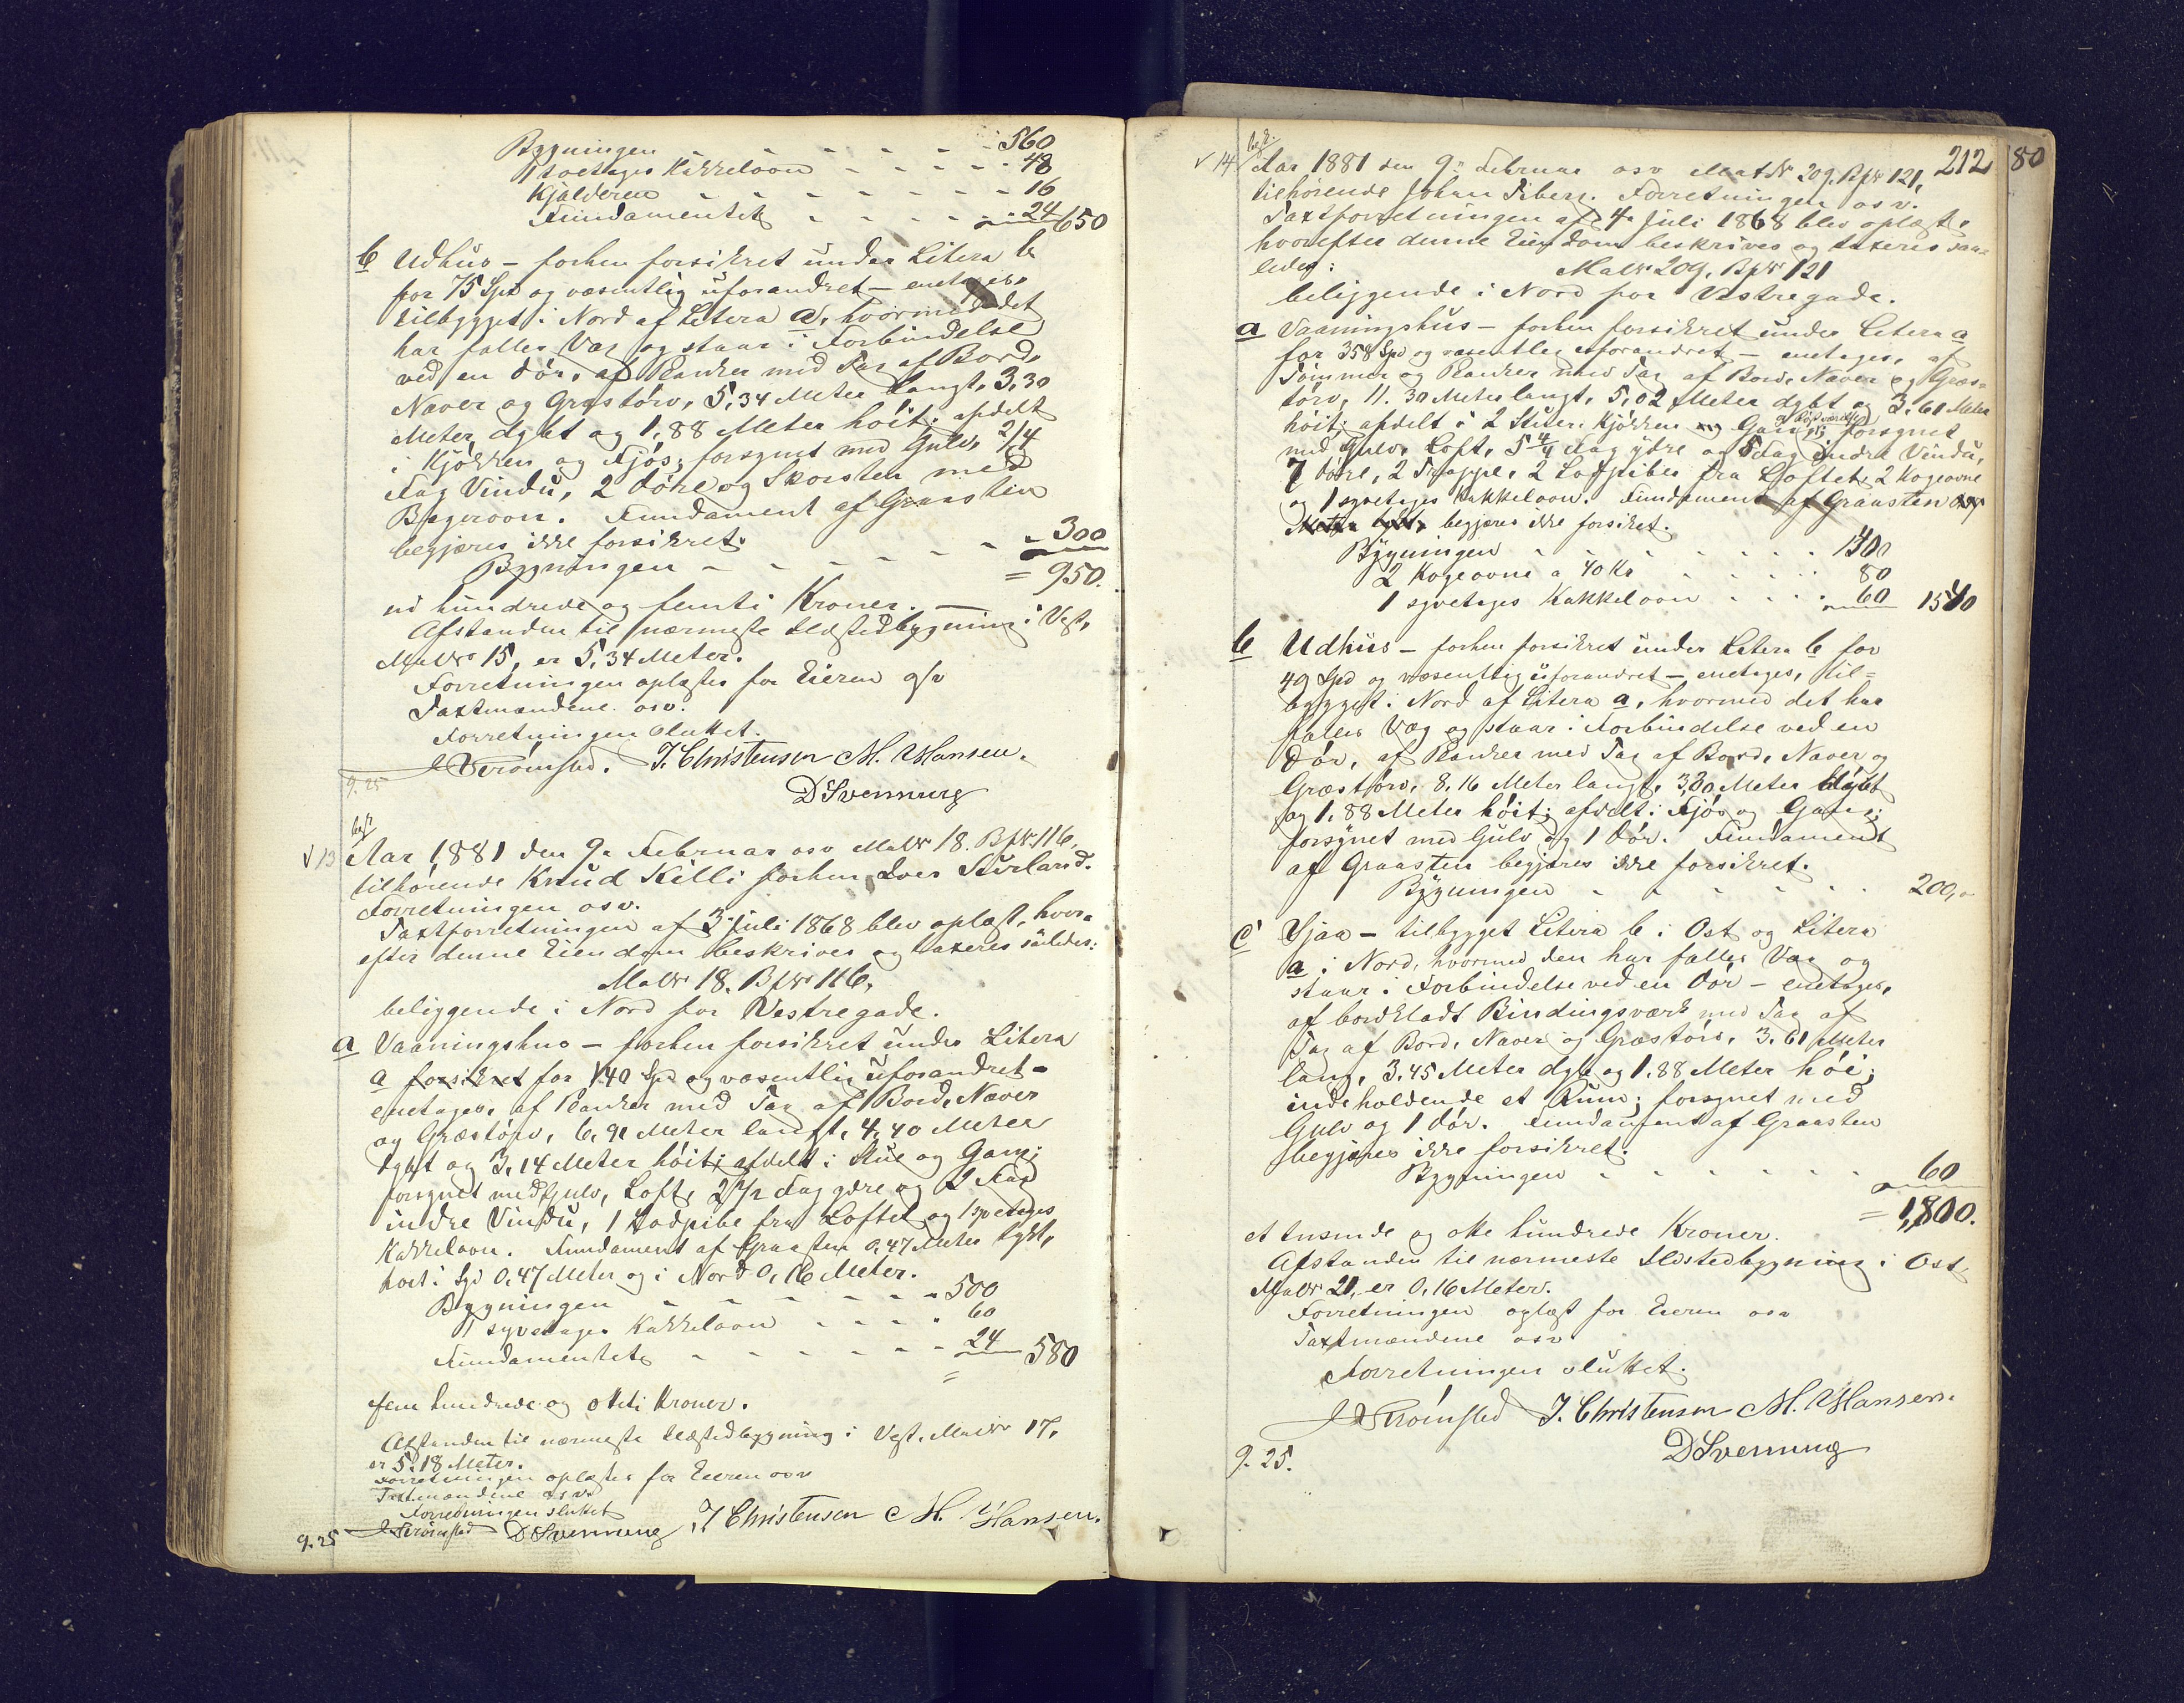 Bygningen - - - - - - 560
1 toetages Kakkelovn - - - - - 48
Kjælderen - - - - - - - 16
Fundamentet - - - - - - 24 650
b Udhus - forhen forsikret under Litera b
for 75 Spd og væsentlig uforandret - enetages,
tilbygget i Nord af Litera a, hvormed det
har fælles Væg og staar i Forbindelse
ved en Dör, af Planker med Tag af Bord,
Næver og Græstörv, 5,34 Meter langt, 3,30
Meter dybt og 1,88 Meter höit; afdelt
i Kjökken og Fjös; forsynet med Gulv, 2/4
Fag Vindu, 2 Döre og Skorsten med
Bagerovn. Fundament af Graasten
begjæres ikke forsikret.
Bygningen - - - - - 300
= 950.
ni hundrede og femti Kroner. —
Afstanden til nærmeste Ildstedbygning i Vest,
MatNr 15, er 5,34 Meter.
Forretningen oplæstes for Eieren osv
Taxtmændene osv.
Forretningen sluttet.
J. Christensen M. Hansen.
9.25
D Svenning
bes
√ 13 Aar 1881 den 9. Februar osv MatNr 18. BpNr 116,
tilhörende Knud Killi forhen Loes Sturland.
Forretningen osv.
Taxtforretningen af 3 Juli 1868 blev oplæst, hvor-
efter denne Eiendom beskrives og taxeres saaledes:
MatNr 18. BpNr 116,
beliggende i Nord for Vestregade.
a Vaaningshus - forhen forsikret under Litera
a forsikret for 140 Spd og væsentlig uforandret -
enetages, af Planker med Tag af Bord, Næver
og Græstörv, 6,91 Meter langt, 4,40 Meter
dybt og 3,14 Meter höit; afdelt i Stue og Gang;
forsynet med Gulv, Loft, 2 1/2 Fag ydre og 2 Fag
indre Vindu, 1 Lodpibe fra Loftet og 1 syvetages
Kakkelovn. Fundament af Graasten 0,47 Meter tykt,
höit i Syd 0,47 Meter og i Nord 0,16 Meter.
Bygningen - - - - - - 500
1 syvetages Kakkelovn - - - - 60
Fundamentet - - - - - - 24 580
=
fem hundrede og otteti Kroner.
Afstanden til nærmeste Ildstedbygning i Vest. MatNr 17,
er 5,18 Meter.
Forretningen oplæstes for Eieren osv
Taxtmændene osv.
Forretningen sluttet
9.25 D Svenning J. Christensen M. Hansen.
212 80
bes.
√ 14 Aar 1881 den 9. Februar osv MatNr 209. BpNr 121,
tilhörende Johan Fiberg. Forretningen osv.
Taxtforretningen af 4. Juli 1868 blev oplæst,
hvorefter denne Eiendom beskrives og taxeres saa-
ledes:
MatNr 209, BpNr 121
beliggende i Nord for Vestregade.
a Vaaningshus - forhen forsikret under Litera a
for 358 Spd og væsentlig uforandret - enetages, af
Tömmer og Planker med Tag af Bord, Næver og Græs-
törv, 11.30 Meter langt, 5,02 Meter dybt og 3,61 Meter
höit; afdelt i 2 Stuer, Kjökken og Gang; forsynet
med Gulv, Loft, 5 4/4 Fag ydre og 5 Fag indre Vindu,
7 Döre, 2 Trapper, 2 Lodpiber fra Loftet, 2 Kogeovne
og 1 syvetages Kakkelovn. Fundament af Graasten
begjæres ikke forsikret.
Bygningen - - - - - - 1400
2 Kogeovne a 40 Kr - - - - 80
1 syvetages Kakkelovn - - - - 60 1540
b Udhus - forhen forsikret under Litera b for
49 Spd og væsentlig uforandret - enetages, til-
bygget i Nord af Litera a, hvormed det har
fælles Væg og staar i Forbindelse ved en
Dör, af Planker med Tag af Bord, Næver og
Græstörv, 8,16 Meter langt, 3,30 Meter dybt
og 1,88 Meter höit; afdelt i Fjös og Gang;
forsynet med Gulv og 1 Dör. Fundament
af Graasten begjæres ikke forsikret.
Bygningen - - - - - - 200,-
c Sjaa - tilbygget Litera b i Ost og Litera
a i Nord, hvormed den har fælles Væg og
staar i Forbindelse ved en Dör - enetages,
af bordklædt Bindingsværk med Tag af
Tag af Bord, Næver og Græstörv, 3,61 Meter
lang, 3,45 Meter dyb og 1,88 Meter höi;
indeholdende et Rum; forsynet med
Gulv og 1 Dör. Fundament af Graasten
begjæres ikke forsikret.
Bygningen - - - - - - 60
= 1,800.
et tusinde og otte hundrede Kroner.
Afstanden til nærmeste Ildstedbygning i Ost,
MatNr 21, er 0,16 Meter.
Forretningen oplæst for Eieren osv
Taxtmændene osv.
Forretningen sluttet.
J. Christensen M. Hansen.
9.25. D Svenning